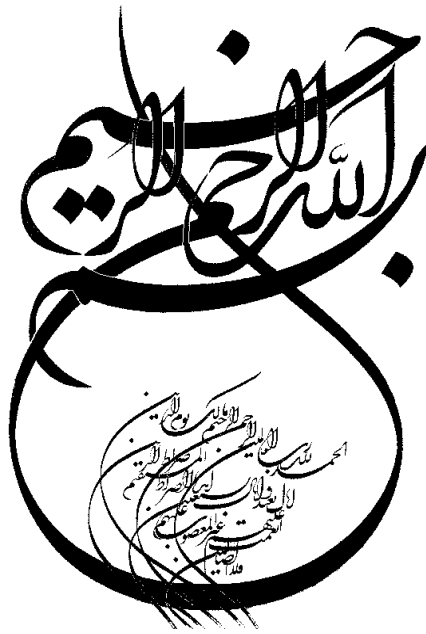 بسم الله الرحمن الرحيم
الحمد لله رب العالمين الرحمن الرحيم مالك يوم الدين
اياك نعبد و اياك نستعين اهدنا الصراط المستقيم
صراط الذين
انعمت عليهم غير المغضوب عليهم
ولا الضالين